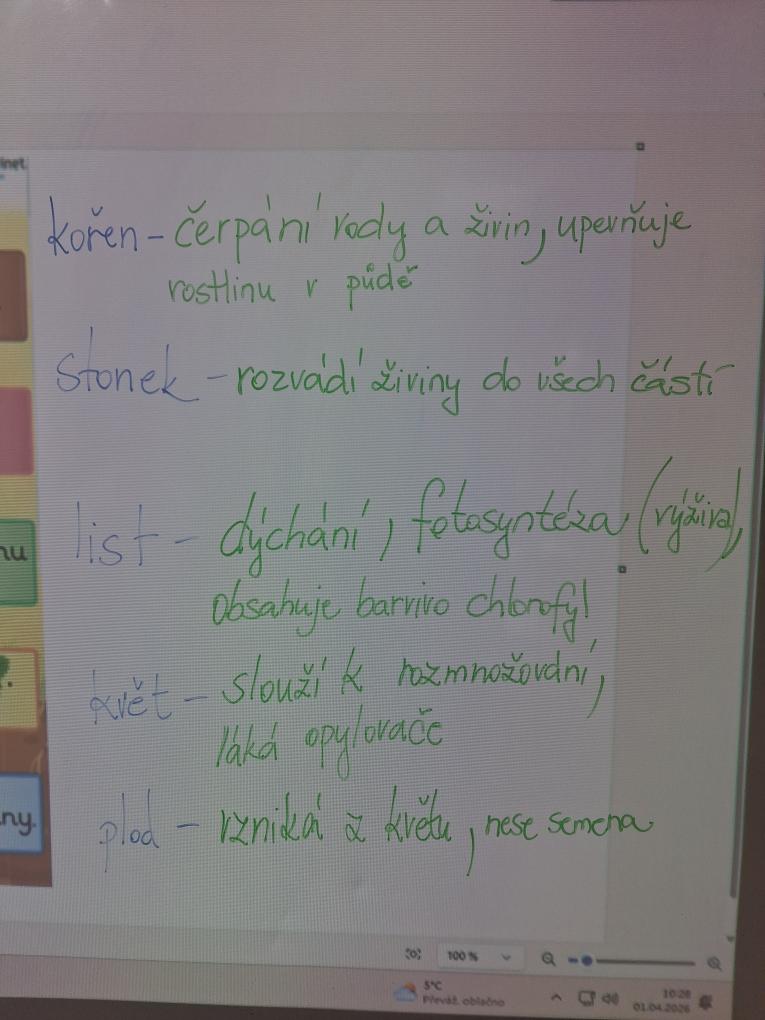 inet.
kořen – čerpání vody a živin, upevňuje
rostlinu v půdě
stonek – rozvádí živiny do všech částí
list – dýchání, fotosyntéza (výživa),
nu
obsahuje barvivo chlorofyl
květ – slouží k rozmnožování,
láká opylovače
plod – vzniká z květu, nese semena
ny.
100 %
5°C
Převáž. oblačno
10:28
01.04.2026